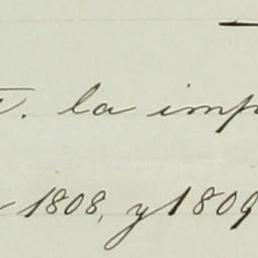 la imp
1808, y 1809